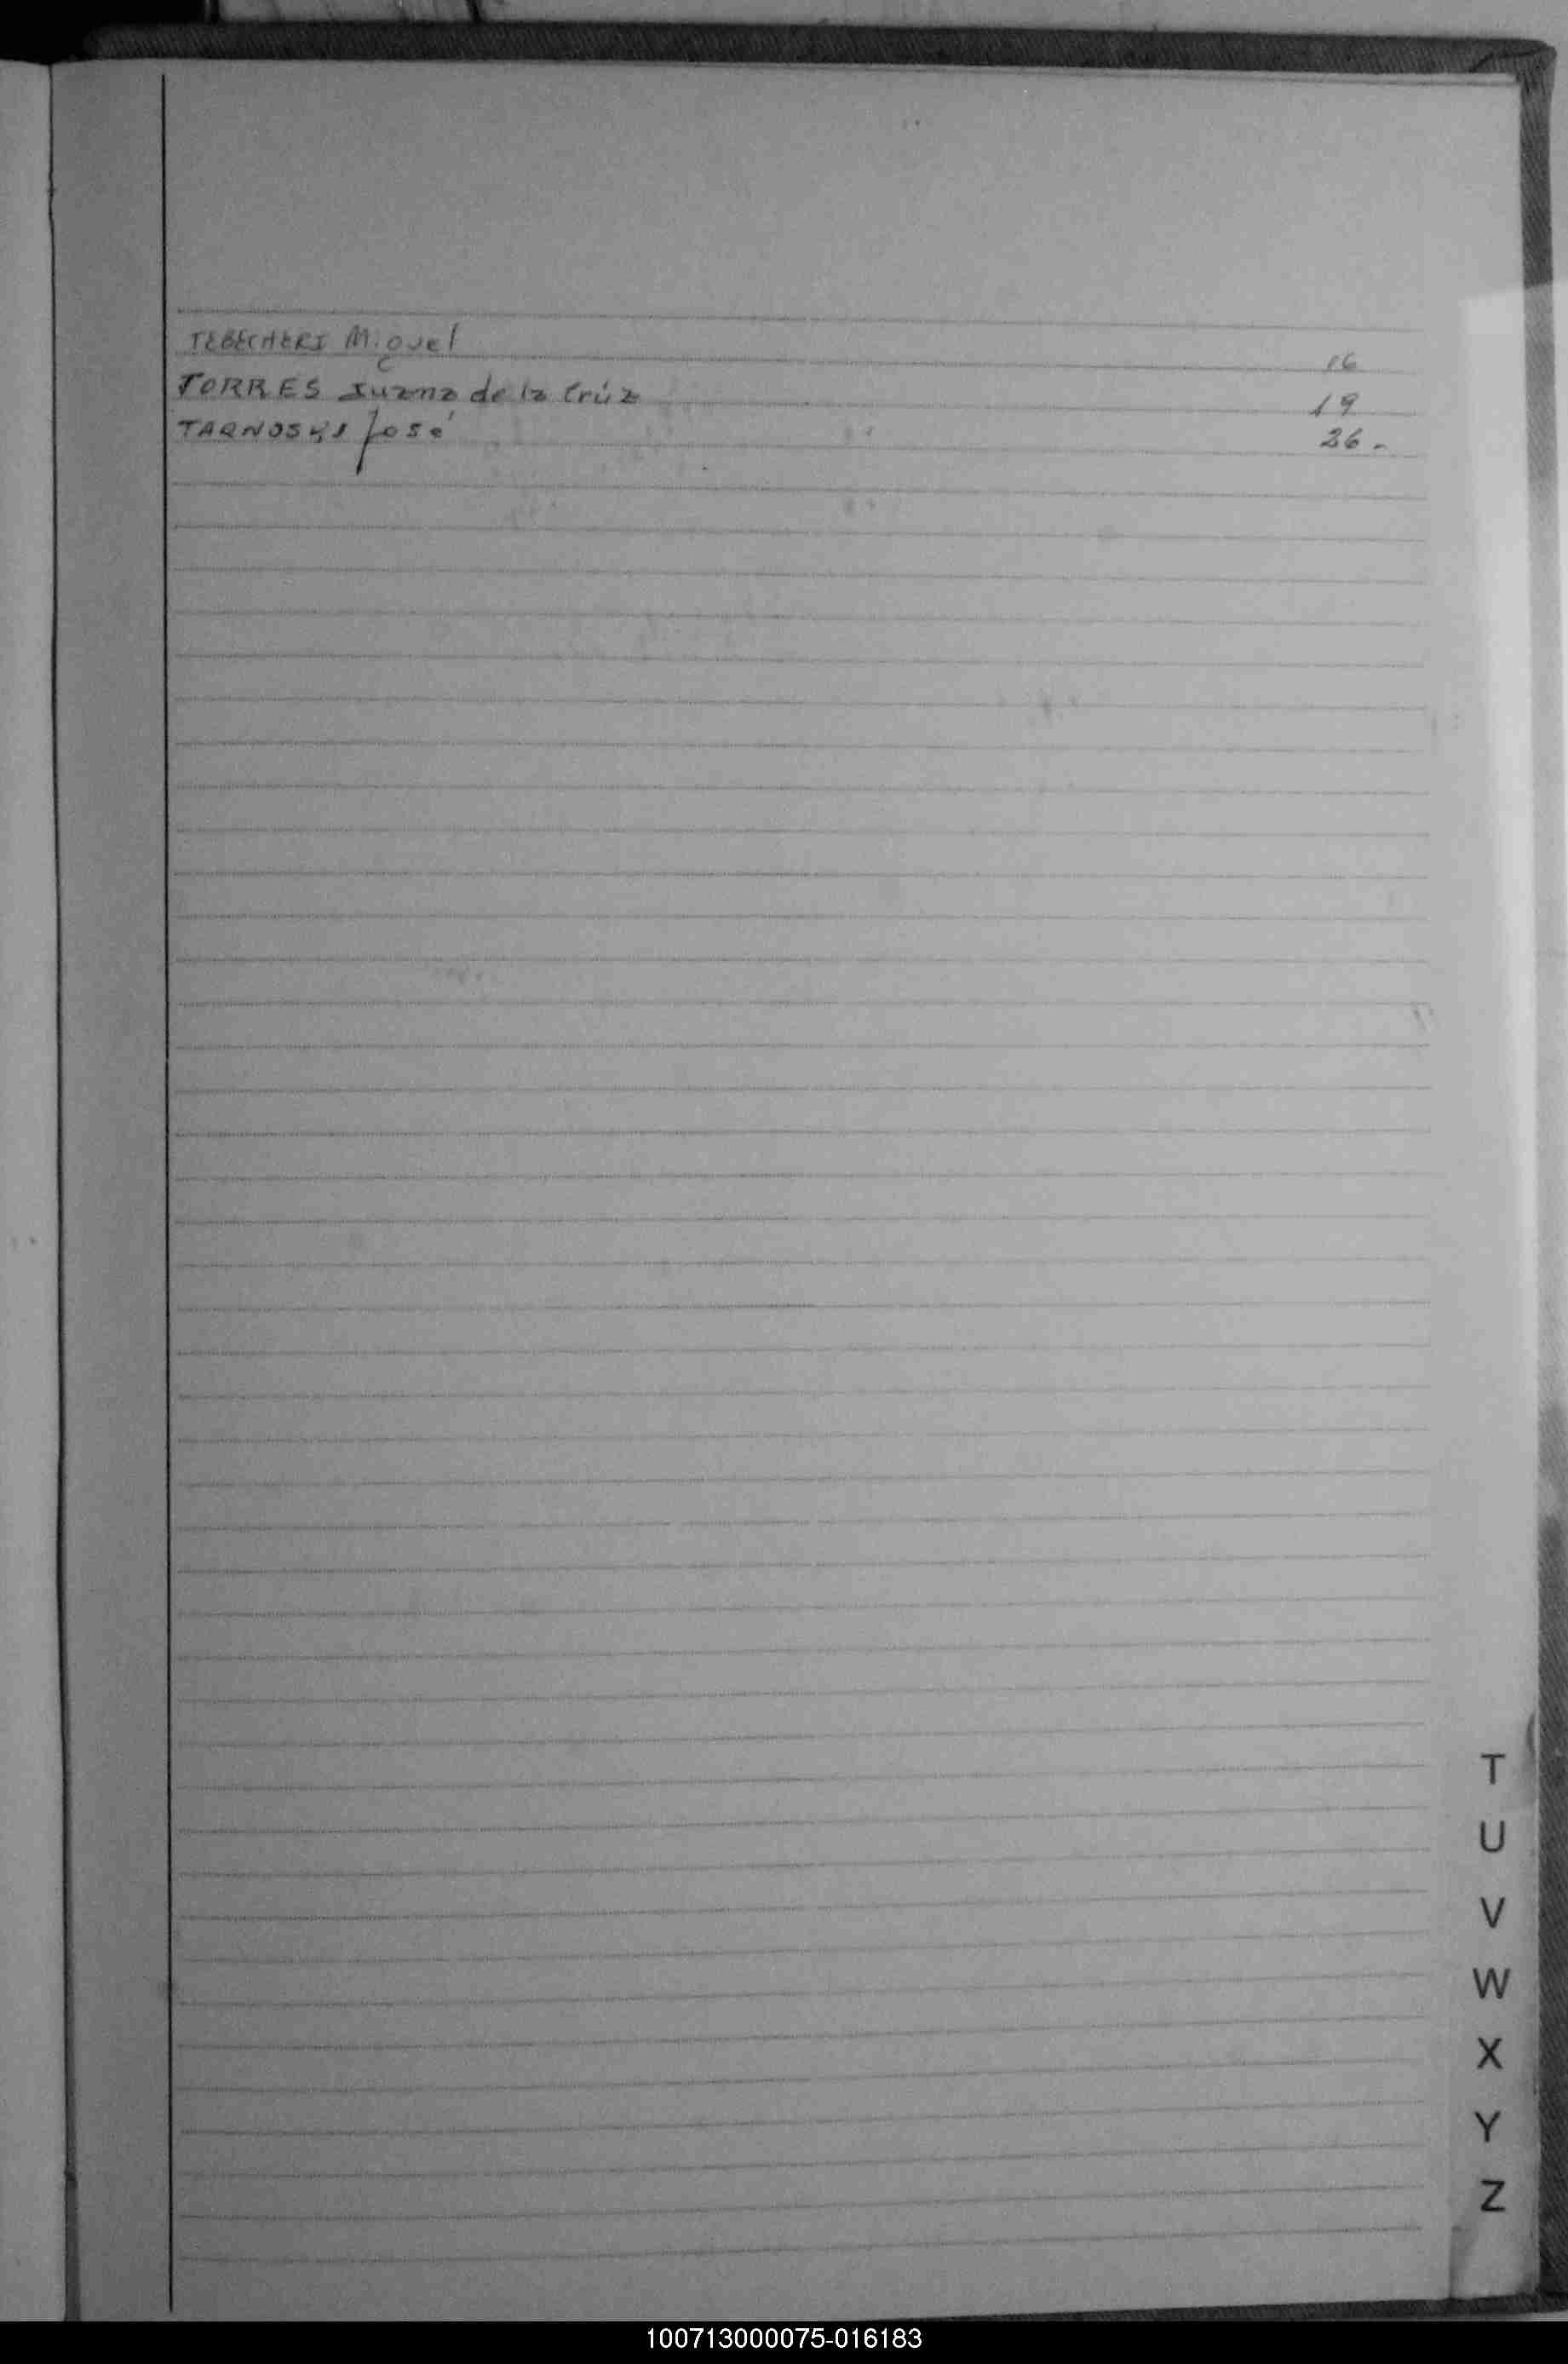 TEBECHERI Miguel 16
TORRES Juana de la Crúz 19
TARNOSKI José 26.-
T
U
V
W
X
Y
Z
100713000075-016183